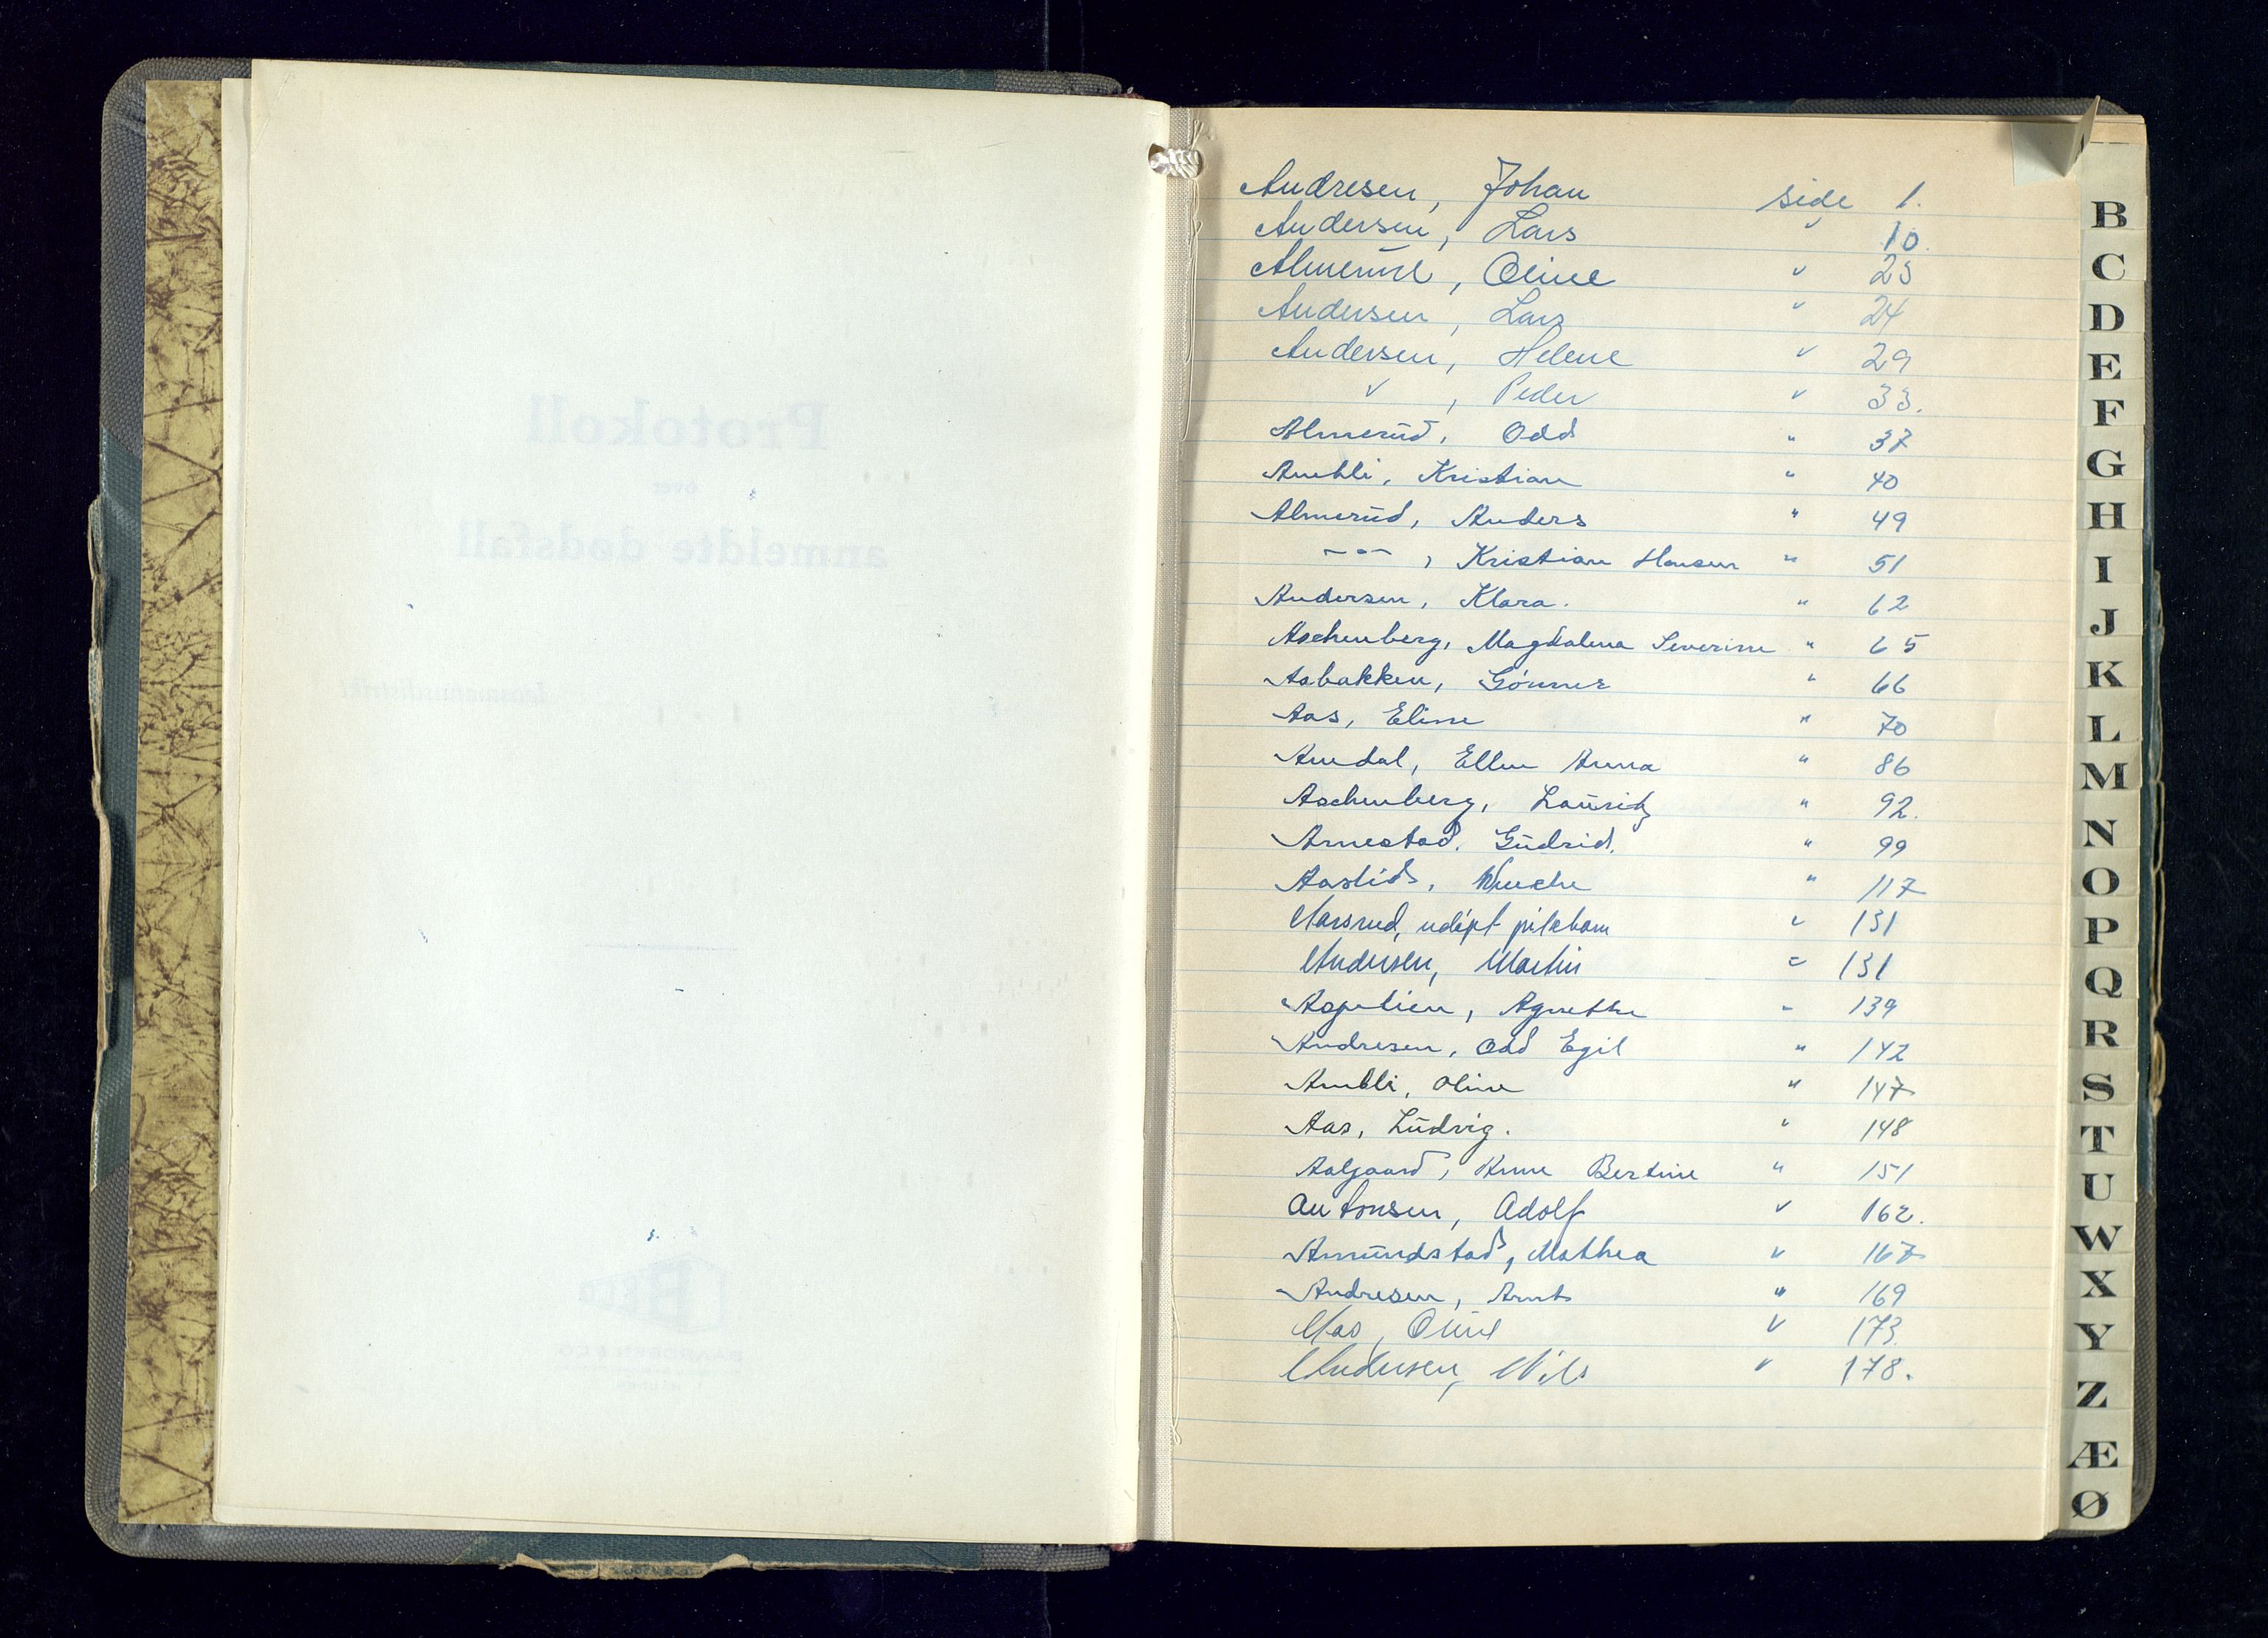 Protokoll
over
anmeldte dødsfall
lensmannsdistrikt
Andresen, Johan side 1.
Andersen, Lars " 10.
Almerud, Oline " 23
Andersen, Lars " 24
Andersen, Helene " 29
" , Peder " 33.
Almerud, Odd " 37
Ambli, Kristian " 40
Almerud, Anders " 49
-"- , Kristian Hansen " 51
Andersen, Klara. " 62
Aschenberg, Magdalena Severine " 65
Asbakken, Gunner " 66
Aas, Eline " 70
Amdal, Ellen Anna " 86
Aschenberg, Lauritz " 92.
Arnestad, Gudrid. " 99
Aaslid, Wenche " 117
Aarsrud, udøpt pikebarn " 131
Andersen, Martin " 131
Aspelien, Agnethe " 139
Andresen, Odd Egil " 142
Ambli, Oline " 147
Aas, Ludvig. " 148
Aalgaard, Anne Bertine " 151
Antonsen, Adolf " 162.
Amundstad, Mathea " 167
Andresen, Arnt " 169
Aas, Oline " 173.
Andersen, Nils " 178.
B
C
D
E
F
G
H
I
J
K
L
M
N
O
P
Q
R
S
T
U
W
X
Y
Z
Æ
Ø